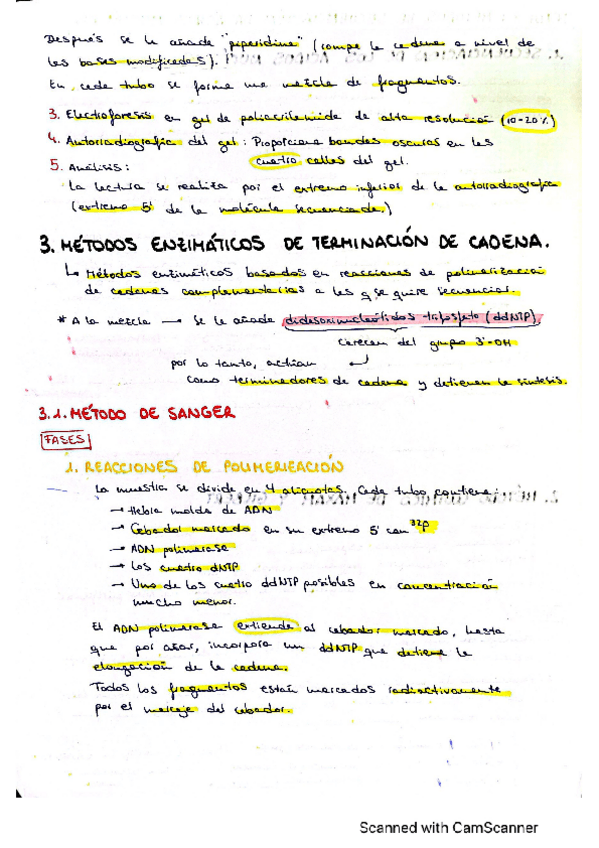 Después se le añade "piperidina" (rompe la cadena a nivel de
las bases modificadas).
En cada tubo se forma una mezcla de fragmentos.
3. Electroforesis en gel de poliacrilamida de alta resolución (10-20%)
4. Autorradiografía del gel: Proporciona bandas oscuras en las
cuatro calles del gel.
5. Análisis:
La lectura se realiza por el extremo inferior de la autorradiografía
(extremo 5' de la molécula secuenciada.)
3. MÉTODOS ENZIMÁTICOS DE TERMINACIÓN DE CADENA.
↳ Métodos enzimáticos basados en reacciones de polimerización
de cadenas complementarias a las q se quire secuenciar.
* A la mezcla → se le añade didesoxinucleótidos trifosfato (ddNTP).
carecen del grupo 3'-OH
por lo tanto, actúan ↵
como terminadores de cadena y detienen la síntesis.
3.1. MÉTODO DE SANGER
FASES
1. REACCIONES DE POLIMERIEACIÓN
La muestra se divide en 4 alícuotas. Cada tubo contiene:
→ Hebra molde de ADN
→ Cebador marcado en su extremo 5' con ³²P
→ ADN polimerasa
→ Los cuatro dNTP
→ Uno de los cuatro ddNTP posibles en concentración
mucho menor.
El ADN polimerasa extiende al cebador marcado, hasta
que por azar, incorpora un ddNTP que detiene la
elongación de la cadena.
Todos los fragmentos están marcados radiactivamente
por el marcaje del cebador.
Scanned with CamScanner